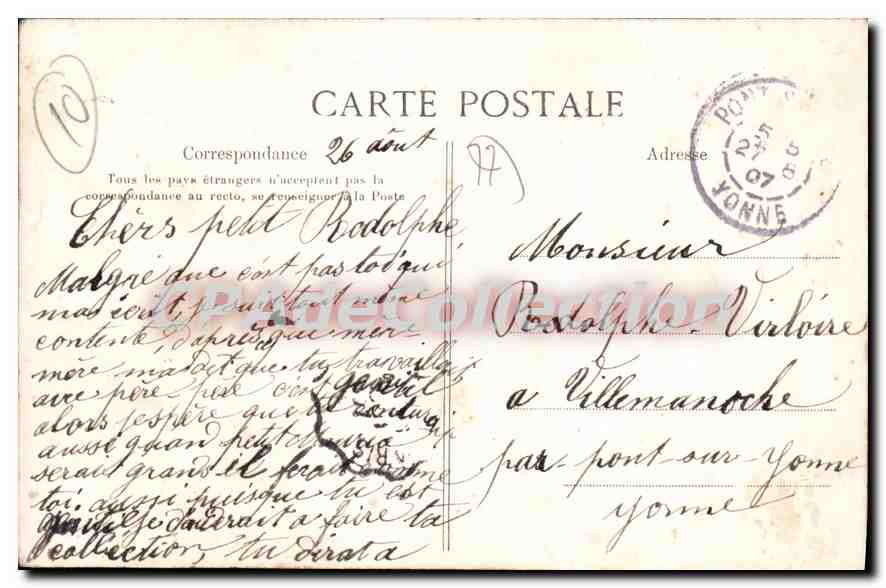 10
CARTE POSTALE
Correspondance 26 août
77
Adresse
Tous les pays étrangers n'acceptent pas la
correspondance au recto, se renseigner à la Poste
PONT
27 8
07
YONNE
Chérs petit Rodolphe
Malgré que c'est pas toi qui
m'a écrit, je suis tout même
contente, d'après que mère
mère m'a dit que tu travaillais
avec père père c'est gentil
alors j'espère que
aussi quand petit Maurice
serait grand il ferait comme
toi. aussi puisque tu est
gentil je t'aiderait a faire ta
collection, tu dirat a
CPAdeCollection
Monsieur
Rodolphe Virloire
a Villemanoche
par pont-sur-Yonne
Yonne